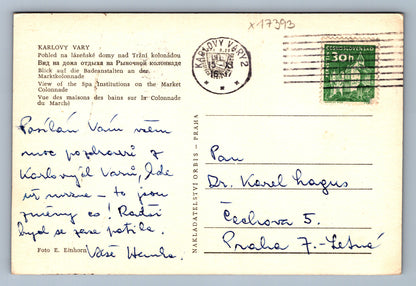 x17393
KARLOVY VARY
Pohled na lázeňské domy nad Tržní kolonádou
Вид на дома отдыха на Рыночной колоннаде
Blick auf die Badeanstalten an der
Marktkolonnade
View of the Spa Institutions on the Market
Colonnade
Vue des maisons des bains sur la Colonnade
du Marché
KARLOVY VARY 2
ČESKOSLOVENSKO
30h
Posílám Vám všem
moc pozdravů z
Karlových Varů, kde
už mrzne – to jsou
změny co! Radši
bych se zase potila.
Vaše Hanka.
Foto E. Einhorn
NAKLADATELSTVÍ ORBIS - PRAHA
Pan
Dr. Karel Lagus
Čechova 5.
Praha 7.-Letná